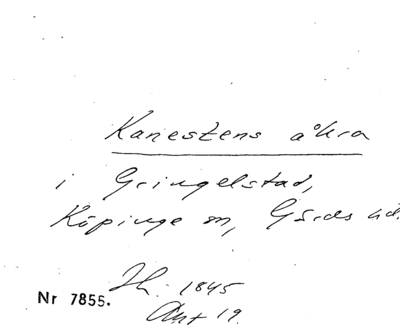 Kanestens åkra
i Gringelstad,
Köpinge sn, Gärds hd.
Sk. 1845
Akt 19.
Nr 7855.